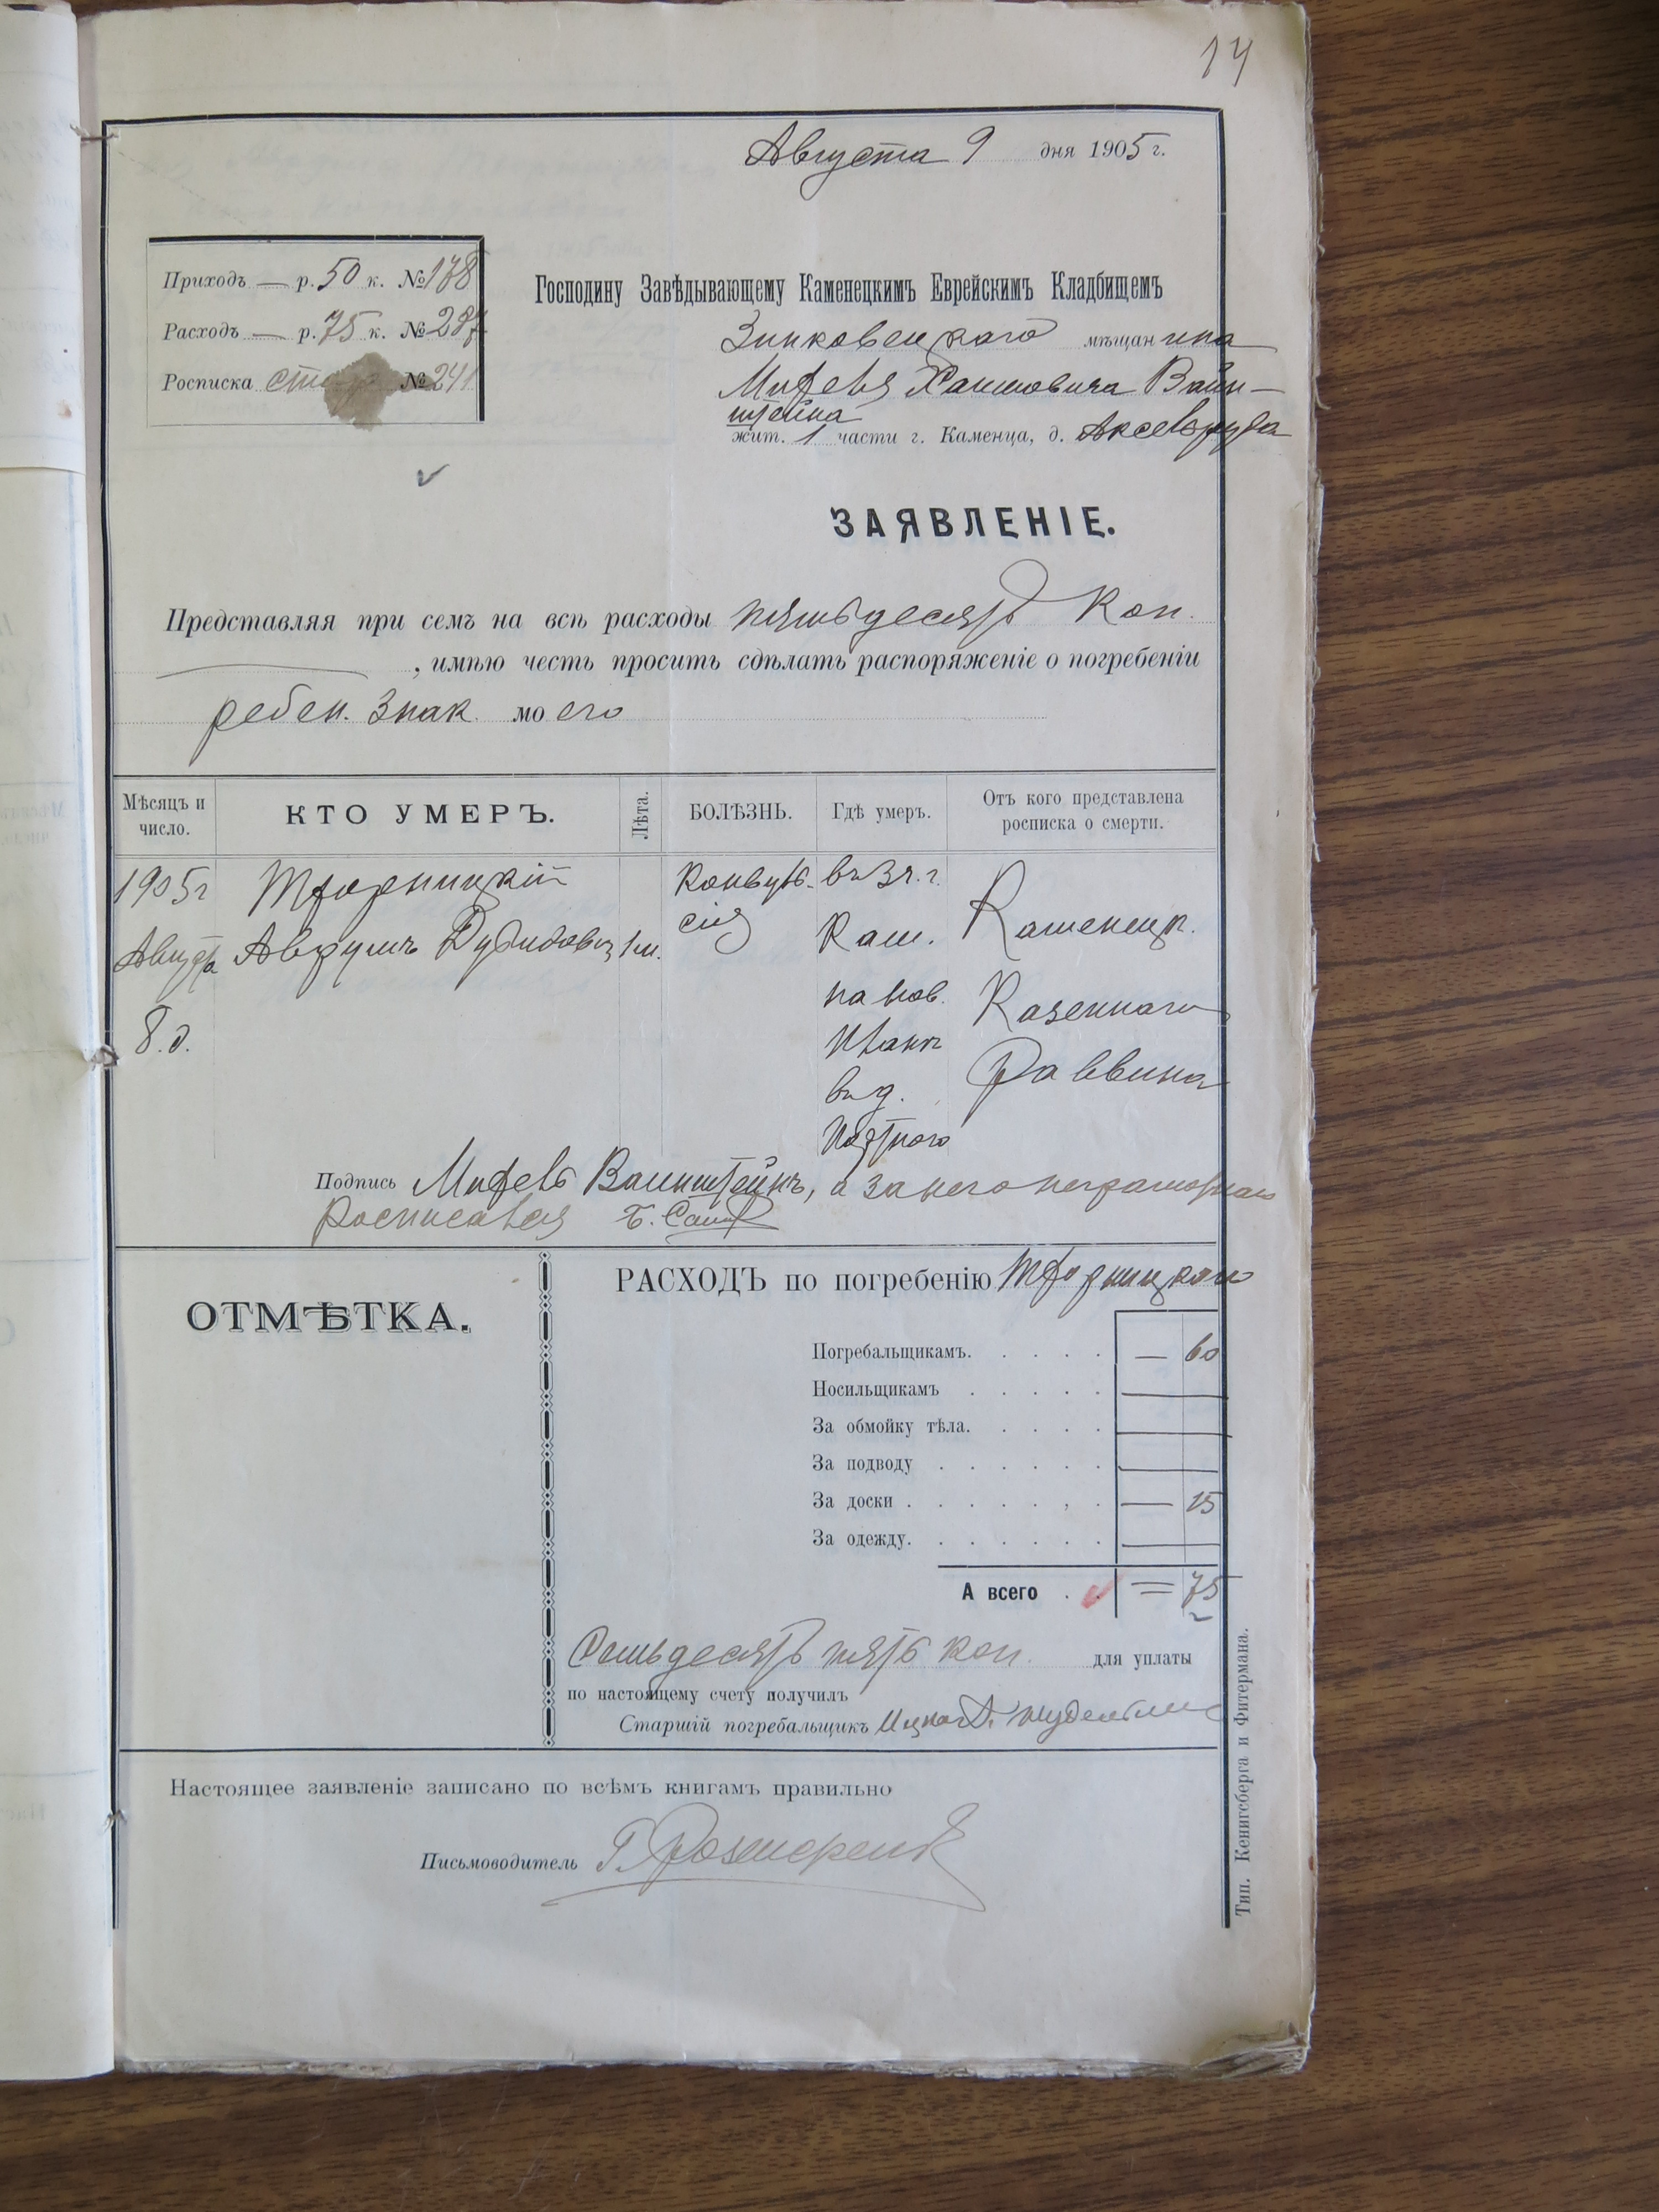 14
Августа 9 дня 1905 г.
Приходъ — р. 50 к. № 178
Расходъ — р. 75 к. № 287
Росписка № 241
Господину Завѣдывающему Каменецкимъ Еврейскимъ Кладбищемъ
Зинковецкаго мѣщанина
Вайн-
штейна
жит. 1 части г. Каменца, д. Аксельруда
ЗАЯВЛЕНІЕ.
Представляя при семъ на всѣ расходы пятьдесятъ коп.
, имѣю честь просить сдѣлать распоряженіе о погребеніи
ребен. знак. моего
Мѣсяцъ и число.
КТО УМЕРЪ.
Лѣта.
БОЛѢЗНЬ.
Гдѣ умеръ.
Отъ кого представлена росписка о смерти.
1905 г
Августа
8 д.
Аврумъ
1 м.
Конвуль-
сія
въ 3 ч. г.
Кам.
на нов.
планѣ
въ д.
Каменецк.
Казеннаго
Раввина
Подпись Вайнштейнъ, а за него неграмотнаго
росписался
ОТМѢТКА.
РАСХОДЪ по погребенію
Погребальщикамъ. — 60
Носильщикамъ —
За обмойку тѣла. —
За подводу —
За доски — 15
За одежду. —
А всего = 75
Семьдесятъ пять коп. для уплаты
по настоящему счету получилъ
Старшій погребальщикъ
Настоящее заявленіе записано по всѣмъ книгамъ правильно
Письмоводитель
Тип. Кенигсберга и Фитермана.